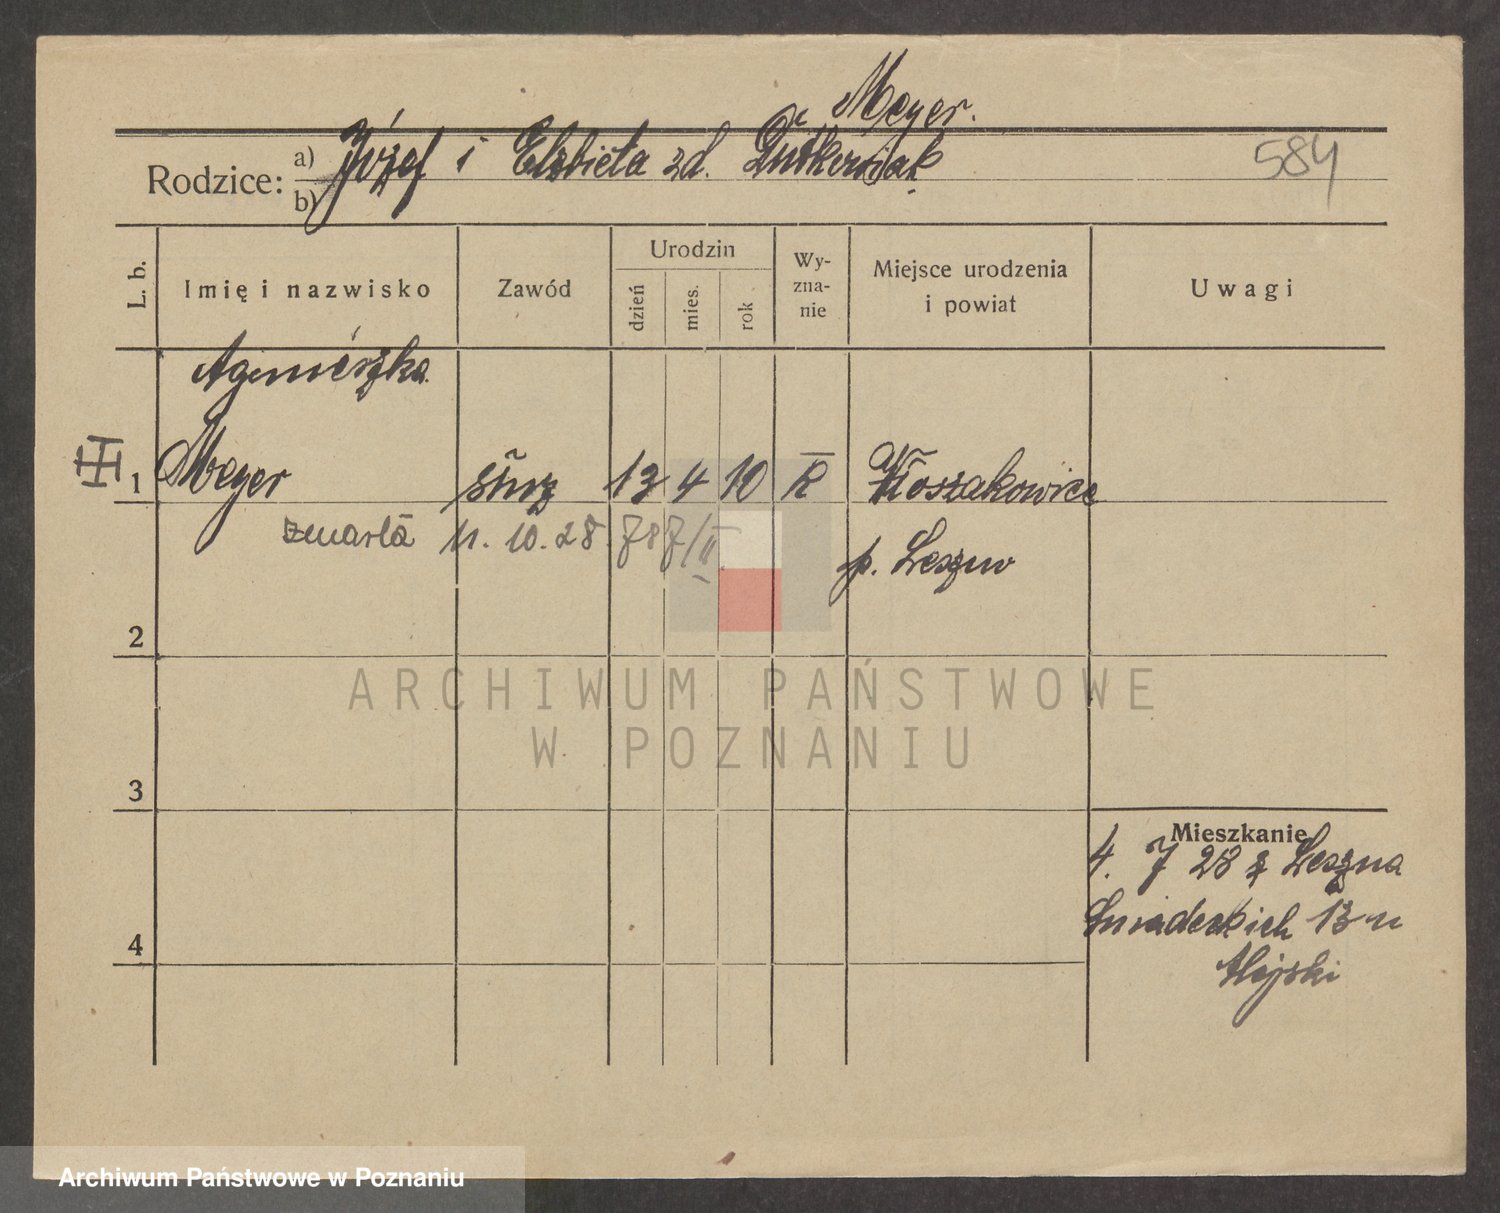 Meyer.
Rodzice: a) Józef i Elżbieta zd. Dutkowiak
b)
584
L. b.
Imię i nazwisko
Zawód
Urodzin
dzień
mies.
rok
Wy-
zna-
nie
Miejsce urodzenia
i powiat
Uwagi
Agnieszka
1 Meyer służ 13 4 10 R
zmarła 11. 10. 28. 787/II
p. Leszno
2
ARCHIWUM PAŃSTWOWE
W POZNANIU
3
Mieszkanie
4. 7 28 z Leszna
Śniadeckich 13 u
4
Archiwum Państwowe w Poznaniu